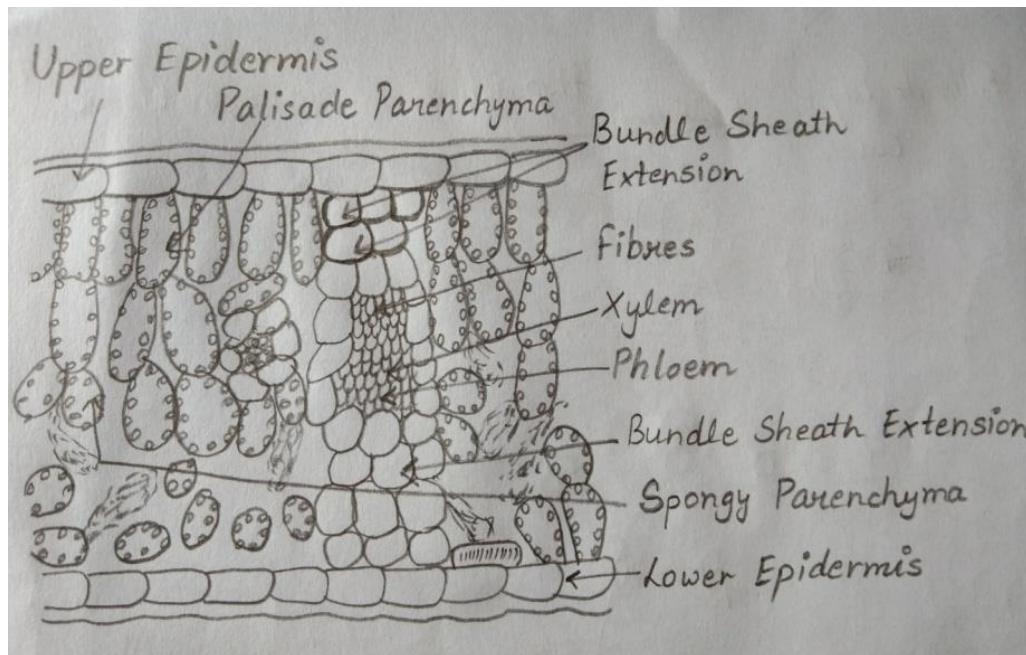 Upper Epidermis
Palisade Parenchyma
Bundle Sheath
Extension
Fibres
Xylem
Phloem
Bundle Sheath Extension
Spongy Parenchyma
Lower Epidermis